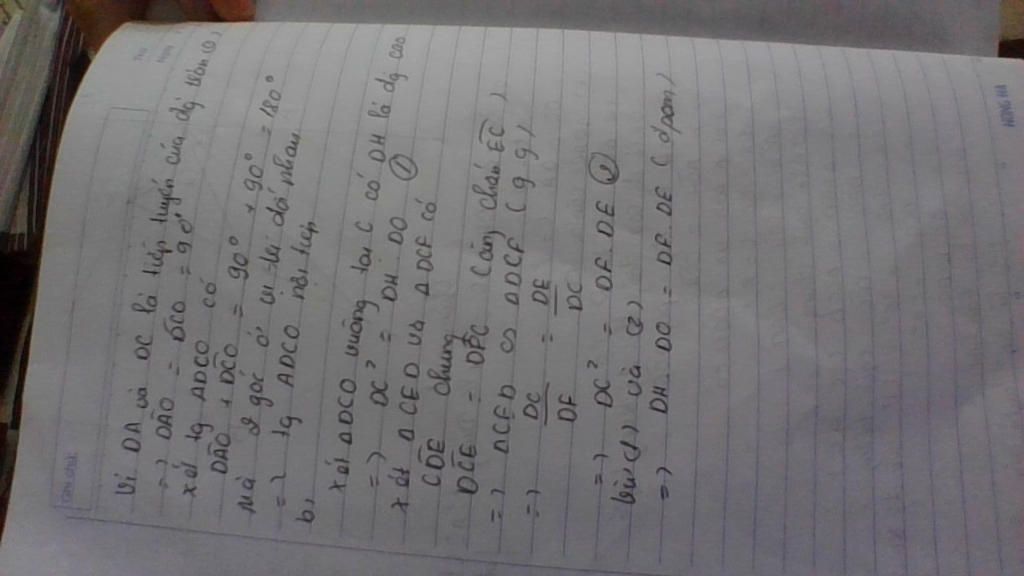 Ghi chú:
Thứ
Ngày
Vì DA và DC là tiếp tuyến của đg tròn (O)
=> DAO = DCO = 90°
xét tg ADCO có
DAO + DCO = 90° + 90° = 180°
Mà 2 góc ở vị trí đối nhau
=> tg ADCO nội tiếp
b,
xét ΔDCO vuông tại C có DH là đg cao
=> DC² = DH. DO ①
xét ΔCED và ΔDCF có
CDE chung
DCE = DFC (cùng chắn EC)
=> ΔCED ∽ ΔDCF (g g)
=> DC/DF = DE/DC
=> DC² = DF. DE ②
Từ (1) và (2)
=> DH. DO = DF. DE (đpcm)
HONG HA